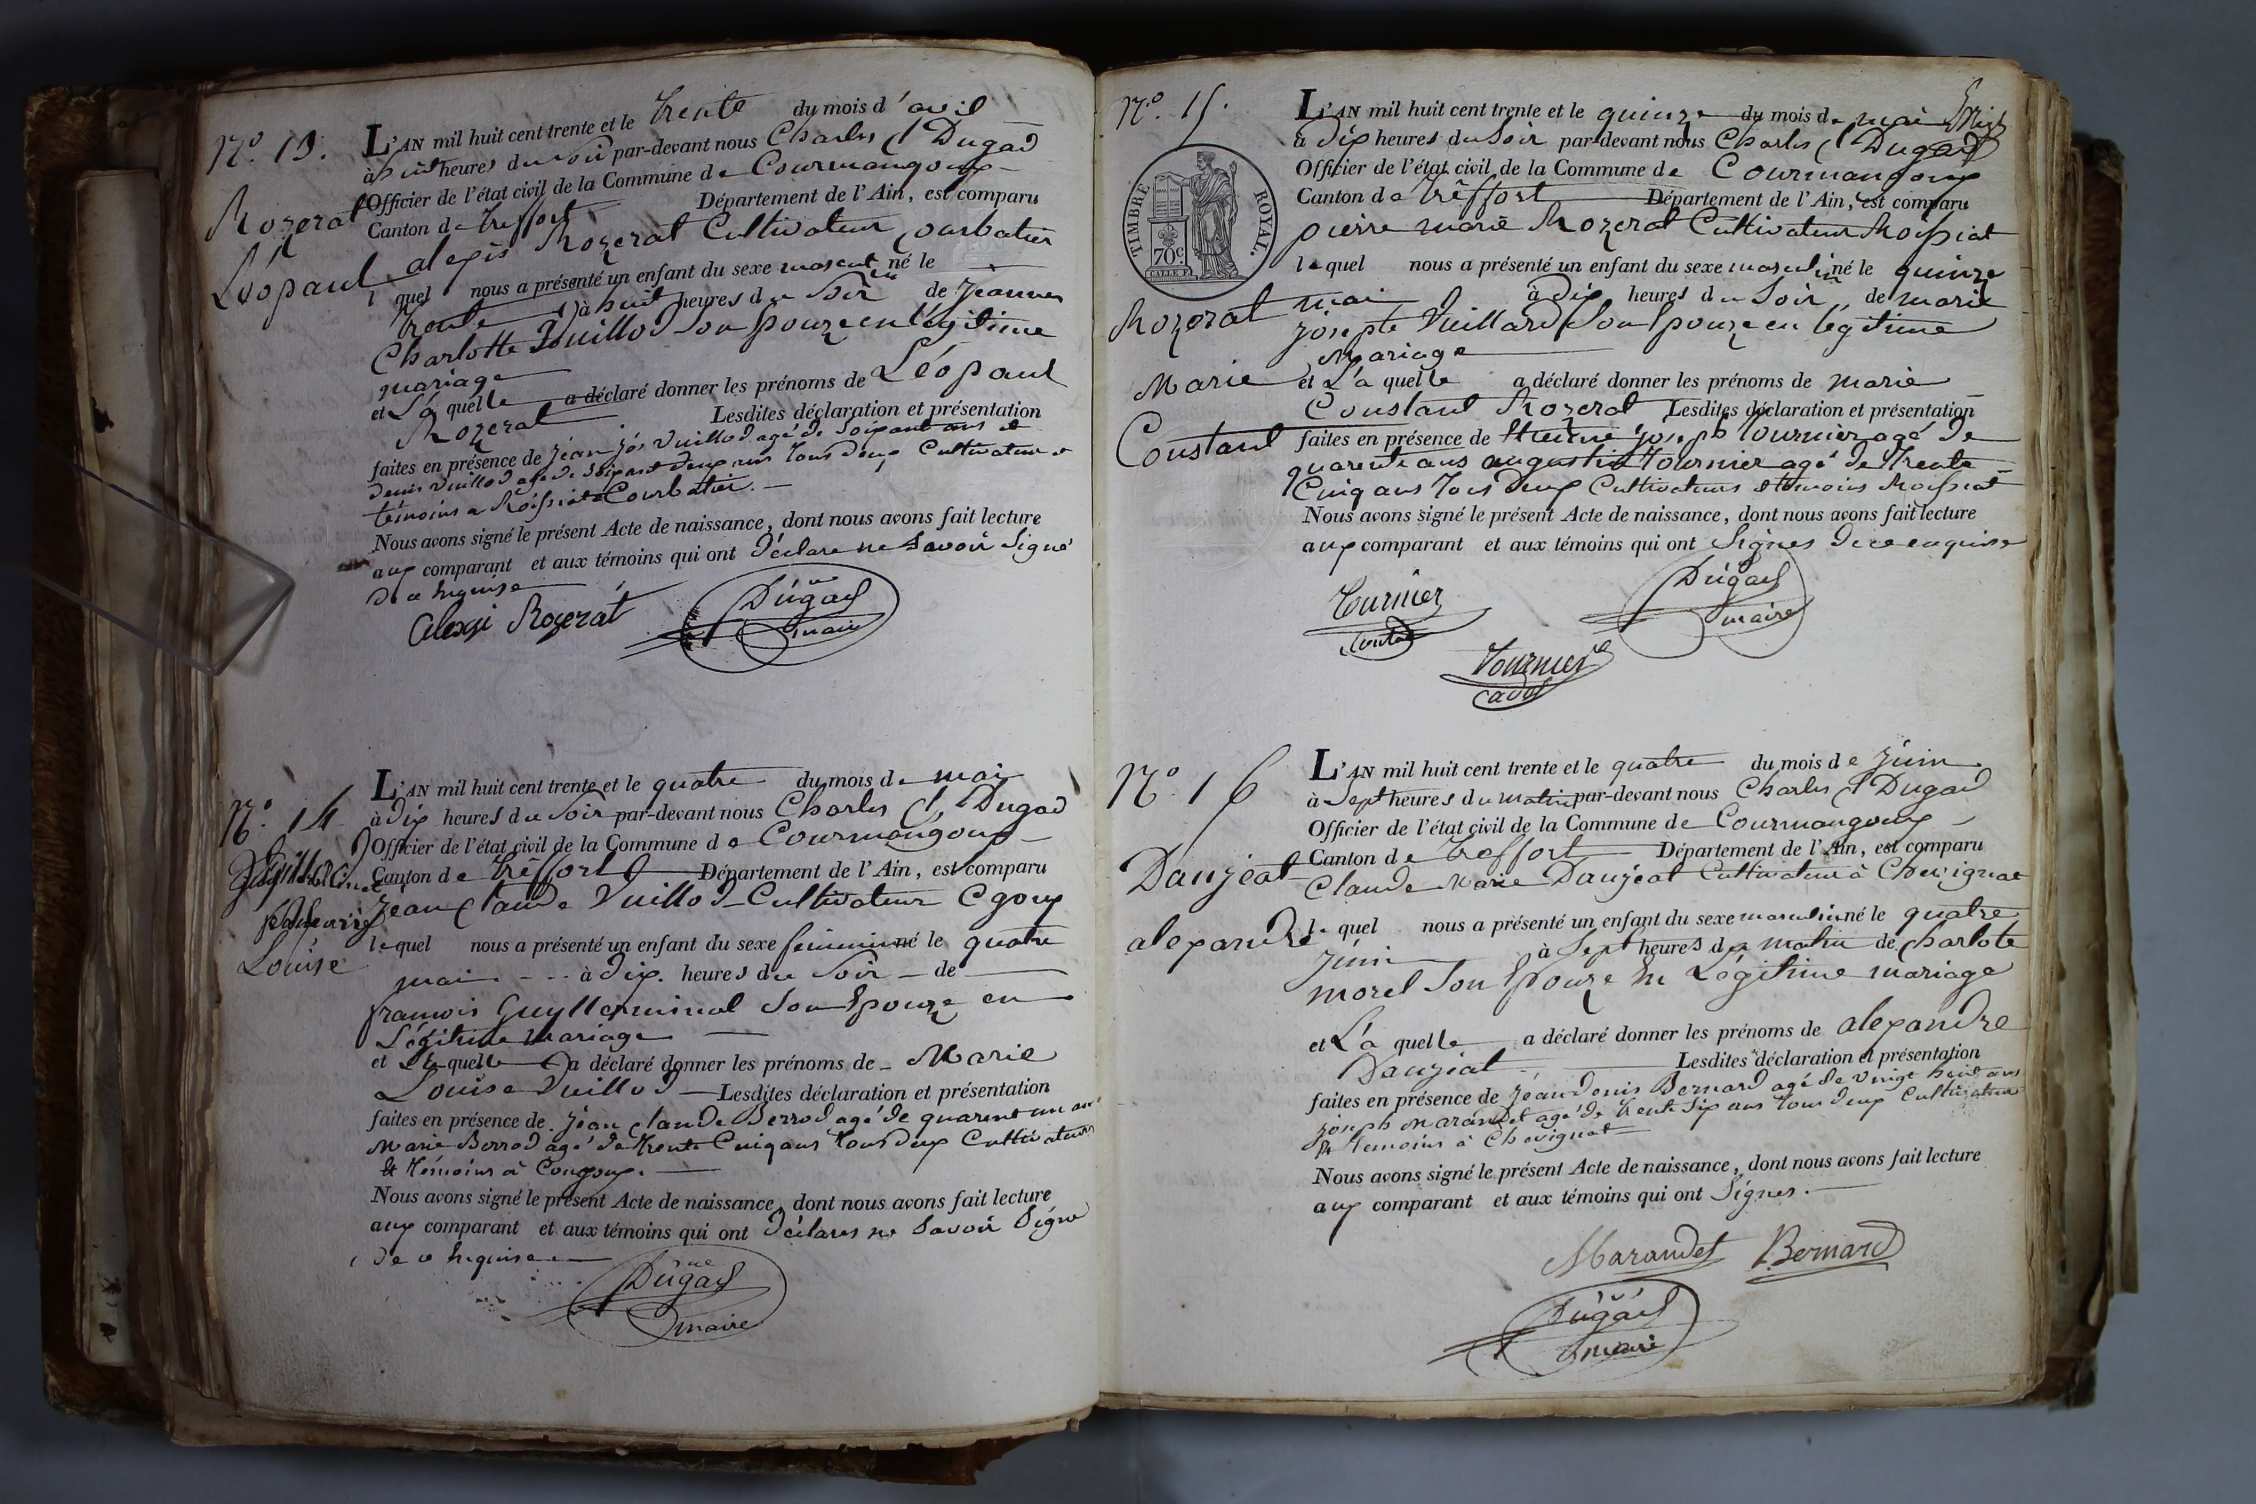 N.º 13.
Rozerat
Léopaul
L'AN mil huit cent trente et le trente du mois d'avril
à huit heures du soir par-devant nous Charles Cl Dugad
Officier de l'état civil de la Commune de Courmangoux
Canton de treffort Département de l'Ain, est comparu
alexis Rozerat Cultivateur
lequel nous a présenté un enfant du sexe masculin né le
trente à huit heures du soir de Jeanne
Charlotte Vuillod son Epouze en légitime
mariage
et L'a quelle a déclaré donner les prénoms de Léopaul
Rozerat Lesdites déclaration et présentation
faites en présence de jean jos Vuillod agé de soixant ans et
denis Vuillod agé de soixant deux ans tous deux Cultivateur et
témoins a Roissiat Courbatier.
Nous avons signé le présent Acte de naissance, dont nous avons fait lecture
aux comparant et aux témoins qui ont déclare ne savoir signé
de ce Enquise
Alexi Rozerat
Dugad
maire
N.º 14
Louise
L'AN mil huit cent trente et le quatre du mois de mai
à dix heures du soir par-devant nous Charles Cl Dugad
Officier de l'état civil de la Commune de Courmangoux
Canton de treffort Département de l'Ain, est comparu
jean Claude Vuillod Cultivateur
lequel nous a présenté un enfant du sexe feminin né le quatre
mai à dix heures du soir de
francois Guyllerminal son Epouze en
Légitime mariage
et quelle a déclaré donner les prénoms de Marie
Louise Vuillod Lesdites déclaration et présentation
faites en présence de jean claude Berrod agé de quarent un an
Marie Berrod agé de trente Cinq ans tous deux Cultivateurs
et témoins à
Nous avons signé le présent Acte de naissance, dont nous avons fait lecture
aux comparant et aux témoins qui ont déclares ne savoir signe
de ce Enquise
Dugad
maire
N.º 15.
TIMBRE ROYAL.
70c
Rozerat
Marie
Constant
L'AN mil huit cent trente et le quinze du mois de mai
à dix heures du soir par-devant nous Charles Cl Dugad
Officier de l'état civil de la Commune de Courmangoux
Canton de treffort Département de l'Ain, est comparu
pierre marie Rozerat Cultivateur Roissiat
lequel nous a présenté un enfant du sexe masculin né le quinze
mai à dix heures du soir de marie
josepte Vuillard son Epouze en légitime
Mariage
et L'a quelle a déclaré donner les prénoms de marie
Constant Rozerat Lesdites déclaration et présentation
faites en présence de joseph tournier agé de
quarente ans augustin tournier agé de trente
Cinq ans tous deux Cultivateurs et témoins Roissiat
Nous avons signé le présent Acte de naissance, dont nous avons fait lecture
aux comparant et aux témoins qui ont Signes de ce enquise
tournier
Dugad
maire
tournier
cadet
N.º 16
Daujeat
alexandre
L'AN mil huit cent trente et le quatre du mois de juin
à sept heures du matin par-devant nous Charles Cl Dugad
Officier de l'état civil de la Commune de Courmangoux
Canton de treffort Département de l'Ain, est comparu
Claude Marie Daujeat Cultivateur à Chevignat
le quel nous a présenté un enfant du sexe masculin né le quatre
juin à sept heures du matin de charlote
morel son Epouze En Légitime mariage
et L'a quelle a déclaré donner les prénoms de alexandre
Daujiat Lesdites déclaration et présentation
faites en présence de jean denis Bernard agé de vingt huit ans
joseph Marandet agé de trente six ans tous deux Cultivateur
Et temoins à Chevignat
Nous avons signé le présent Acte de naissance, dont nous avons fait lecture
aux comparant et aux témoins qui ont signes.
Marandet Bernard
Dugad
maire